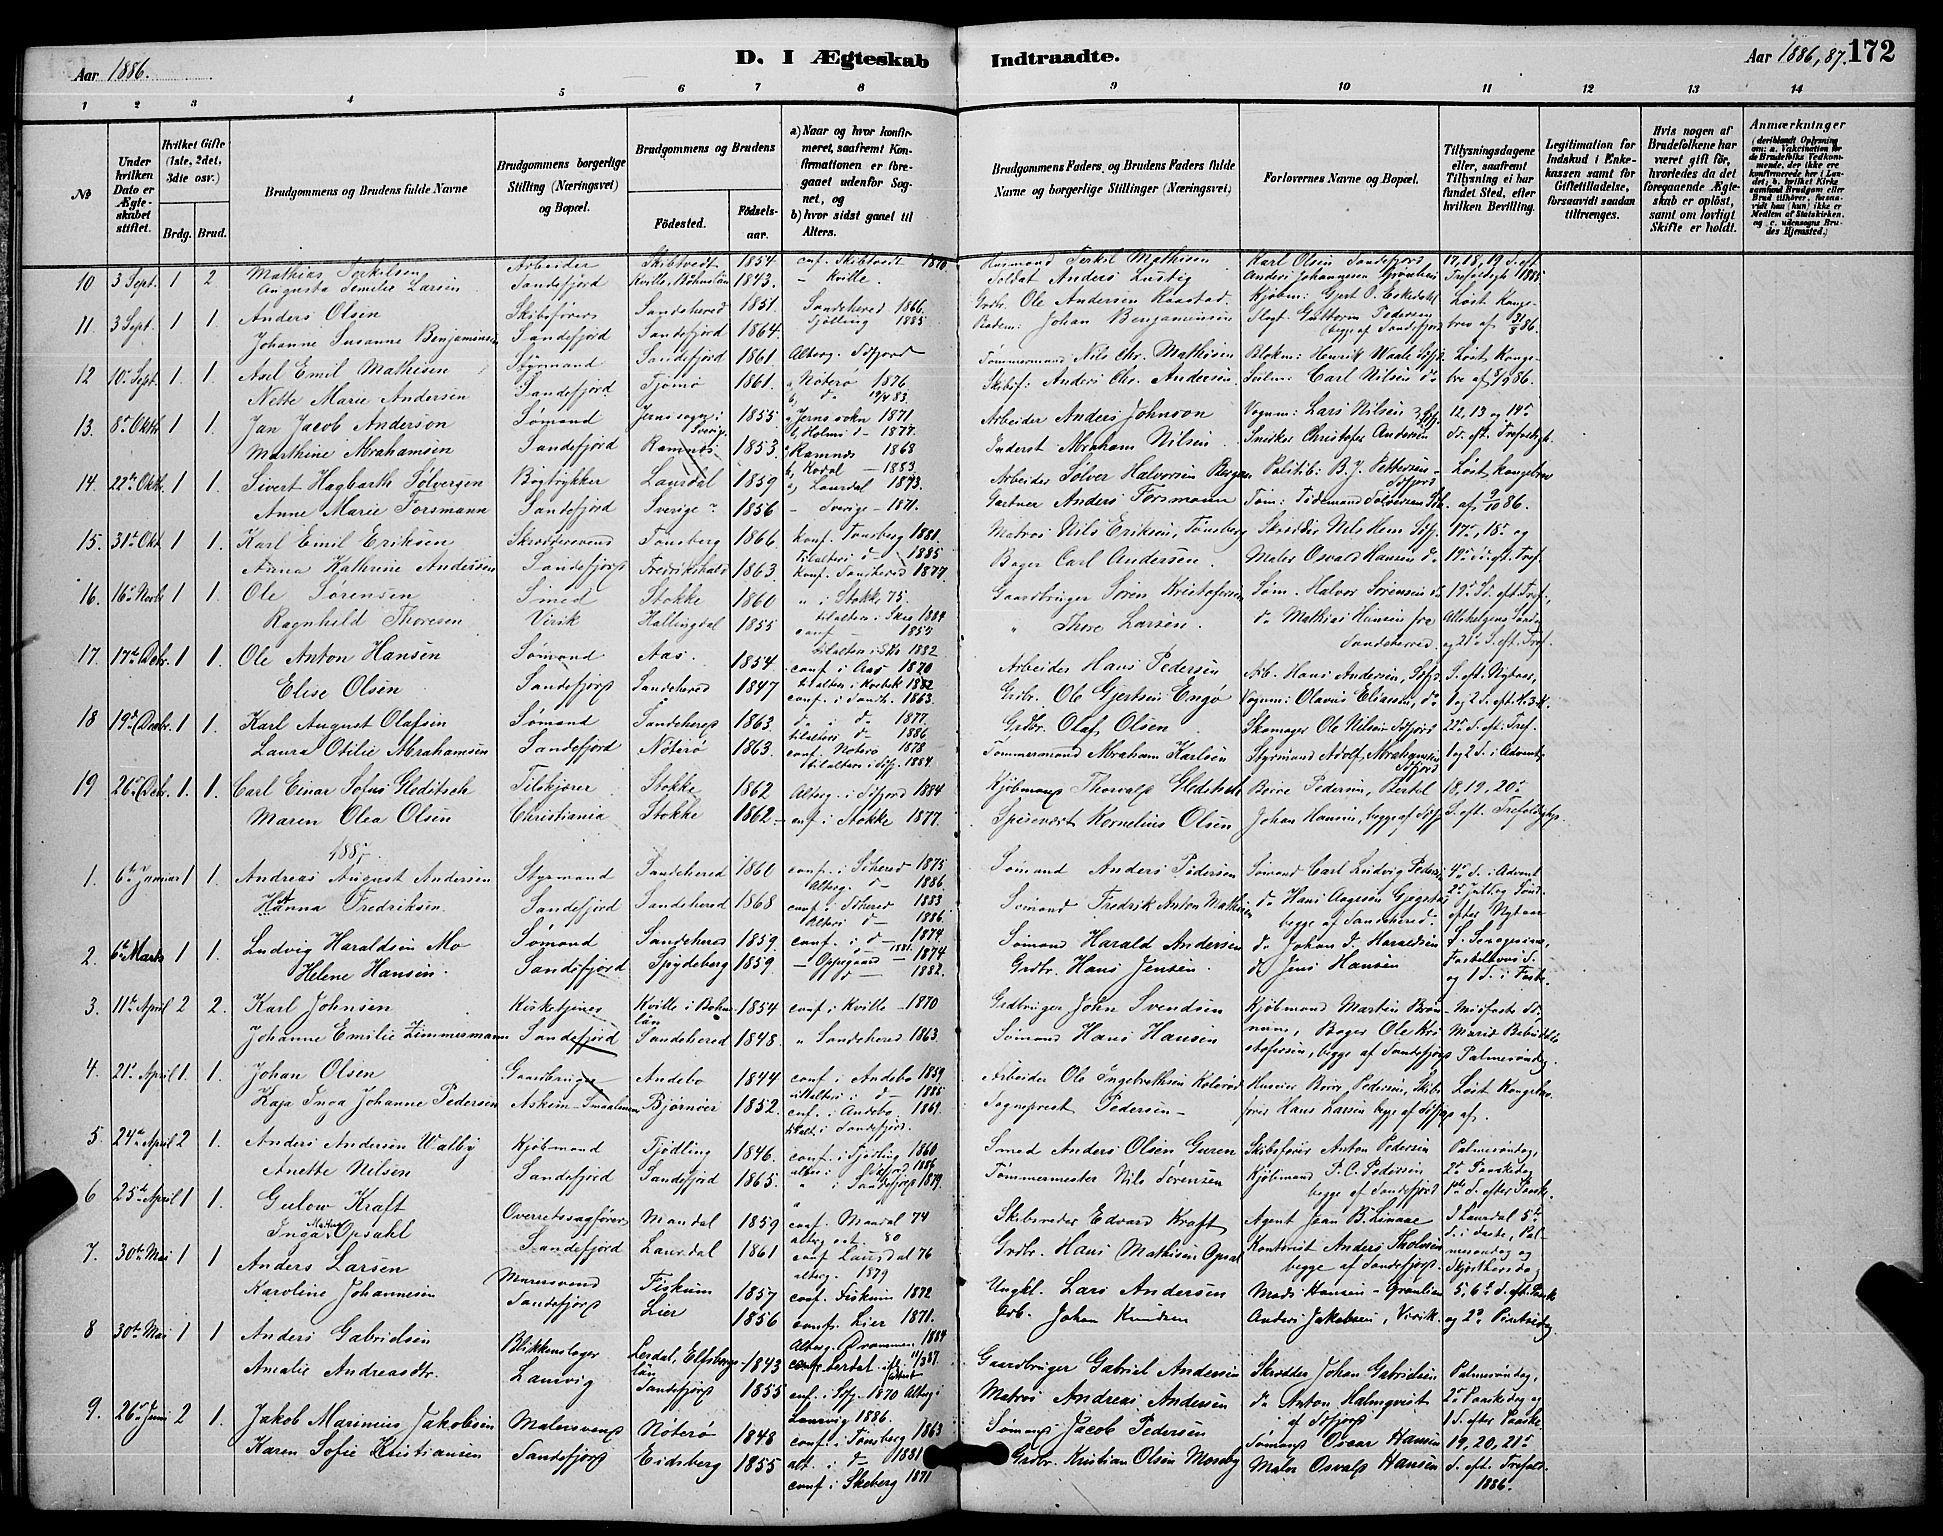 Aar 1886.
D. I Ægteskab Indtraadte.
Aar 1886, 87. 172
1 2 3 4 5 6 7 8 9 10 11 12 13 14
№
Under hvilken Dato er Ægteskabet stiftet.
Hvilket Gifte (1ste, 2det, 3die osv.)
Brdg. Brud.
Brudgommens og Brudens fulde Navne
Brudgommens borgerlige Stilling (Næringsvei) og Bopæl.
Brudgommens og Brudens
Fødested. Fødselsaar.
a) Naar og hvor konfirmeret, saafremt Konfirmationen er foregaaet udenfor Sognet, og
b) hvor sidst gaaet til Alters.
Brudgommens Faders og Brudens Faders fulde Navne og borgerlige Stillinger (Næringsvei)
Forlovernes Navne og Bopæl.
Tillysningsdagene eller, saafremt Tillysning ei har fundet Sted, efter hvilken Bevilling.
Legitimation for Indskud i Enkekassen samt for Giftetilladelse, forsaavidt saadan tiltrænges.
Hvis nogen af Brudefolkene har været gift før, hvorledes da det foregaaende Ægteskab er opløst, samt om lovligt Skifte er holdt.
Anmærkninger
10 3 Sept. 1 2 Mathias Terkelsen Arbeider Skibtvedt 1854 conf. Skibtvedt 1870 Husmand Terkel Mathisen Karl Olsen Sandefjord 17, 18, 19 S. eft.
Augusta Emilie Larsen Sandefjord Kville, Bohuslän 1843. – Kville. Soldat Anders Lustig Anders Johannesen Graulien Trefoldigh 1885
11 3 Sept. 1 1. Anders Olsen Skibsfører Sandeherred 1851 Sandeherred 1866. Grdbr. Ole Andersen Raastad Kjøbm: Gjert P. Eskedahl Løst Konge-
Johanne Susanne Benjaminsen Sandefjord Sandefjord 1864. Tjølling 1885 Johan Benjaminsen Guttorm Pedersen begge af Sandefjord brev af 31/8 86.
12 10 Sept. 1. 1. Axel Emil Mathisen Styrmand Sandefjord 1861 Alterg. Sdfjord Tømmermand Nils Chr. Mathisen Blokm: Henrik Waale Sdfj. Løst Konge-
Nette Marie Andersen Sandefjord Tjømø 1861. Nøterø 1876. Skibsf: Anders Chr. Andersen Seilm: Carl Nilsen do brev af 8/9 86.
13. 8de Oktb 1 1. Jan Jacob Anderson Sømand Jerns sogn i Sverige 1855. Jerns sokn 1871. Arbeider Anders Johnson Vognm: Lars Nilsen 12, 13 og 14de
Marthine Abrahamsen Sandefjord Ramnæs 1853 Ramnæs 1868 Inderst Abraham Nilsen Snedker Christofer Andersen S. eft. Trefoldigh.
Kodal – 1883.
14. 22de Oktb. 1 1. Sivert Hagbarth Sølversen Bogtrykker Laurdal 1859 Laurdal 1873. Arbeider Sølver Halvorsen Bergan Politib: B. J. Pettersen Sdfjord Løst Kongebrev
Anne Marie Forsmann Sandefjord Sverige 1856 – Sverige – 1871. Gartner Anders Forsmann Tøm: Tidemand Sølversen af 9/10 86.
15. 31te Okt. 1 1. Karl Emil Eriksen Skræddersvend Tønsberg 1866 Konf. Tønsberg 1881. Matros Nils Eriksen, Tønsberg Skrædder Nils Hem Sdfj. 17de, 18de og
Anna Kathrine Andersen Sandefjord Fredrikshald 1863. Konf. Sandherred 1877. Bager Carl Andersen Maler Osvald Hansen do 19de S. eft. Tref.
16. 16de Novb. 1 1. Ole Sørensen Smed Stokke 1860 " i Stokke 75. Gaardbruger Søren Kristofersen Søm. Halvor Sørensen 19de S. eft. Tref.,
Ragnhild Thoresen Virik Hallingdal 1855 " Thore Larsen. do Mathias Hansen Sandeherred og 21de S. eft. Tref.
17. 17de Debr. 1 1. Ole Anton Hansen Sømand Aas. 1854. conf. i Aas 1870 Arbeider Hans Pedersen Arb. Hans Andersen, Sdfj. S. eft. Nytaar,
Elise Olsen Sandefjord Sandeherred 1847 conf. i Sandh. 1863. Grdbr. Ole Gjertsen Engø Vognm: Olavus Eliassen, do 1 og 2 S. eft. H. 3 K.
18 19de Debr. 1 1. Karl August Olafsen Sømand Sandeherred 1863 do i do 1877. Grdbr. Olaf Olsen Skomager Ole Nilsen Sdfjord 22de S. eft. Tref.
Laura Otilie Abrahamsen Sandefjord Nøterø 1863. conf. Nøterø 1878 Tømmermand Abraham Karlsen Styrmand Adolf Abrahamsen Sdfjord 1 og 2 S. i Advent
tilalters i Sdfj. 1884.
19 26de Debr. 1. 1. Carl Einar Sofus Gleditsch Filskjærer Stokke 1862 Alterg. i Sdfjord 1884 Kjøbmand Thorvald Gleditsch Børre Pedersen, Bertel 18, 19, 20de
Maren Olea Olsen Christiania Stokke 1862 – conf. i Stokke 1877. Spisevært Kornelius Olsen Johan Hansen, begge af Sdfj. S. eft. Trefoldigh.
1887.
1. 6te Januar 1 1. Andreas August Andersen Styrmand Sandeherred 1860 conf. i Sdherred 1875 Sømand Anders Pedersen Sømand Carl Ludvig Pedersen 4de S. i Advent
Alterg. do 1886.
Hanna Fredriksen. Sandefjord Sandeherred 1868 conf. i Sdherred 1883 Sømand Fredrik Anton Mathisen do Hans Aagesen begge af Sandeherred. 2de Juled. og Sønd. efter Nytaar
Alters do 1886.
2. 6te Marts 1 1. Ludvig Haraldsen Mo Sømand Sandeherred 1859. conf. i do – 1874 Sømand Harald Andersen do Johan A. Haraldsen S. Seragesima,
Helene Hansen. Sandefjord Spydeberg 1859. – Oppegaard – 1874 Grdbr. Hans Jensen. do Jens Hansen Fastelavns S. og 1 S. i Faste.
3. 11te April 2 2. Karl Johnsen Kirketjener Kville i Bohuslän 1854 conf. i Kville – 1870 Grdbruger John Svendsen Kjøbmand Martin Brønnum, Midfaste S.
Johanne Emilie Zimmermann Sandefjord Sandeherred 1848. " Sandeherred 1863. Sømand Hans Hansen Bager Ole Kristofersen, begge af Sandefjord Mariæ Bebudelse Palmesøndag.
4. 21de April 1. 1. Johan Olsen Gaardbruger Andebo 1844 conf. i Andebo 1859 Arbeider Ole Ingebrethsen Kolerød Børre Pedersen, Skibs- Løst Kongebrev
Kaja Inga Johanne Pedersen Askim – Smaalenene Bjørnør 1852. conf. i Andebo 1869. Sogneprest Pedersen – fører Hans Larsen begge af Sdfj. af.
tilalt. i Sandefjord.
5. 24de April 2 1. Anders Andersen Walby Kjøbmand Tjødling 1846. conf. i Tjølling 1860 Smed Anders Olsen Guren Skibsfører Anton Pedersen Palmesøndag,
Anette Nilsen Sandefjord Sandefjord 1865. " i Sandefjord 1879. Tømmermester Nils Sørensen Kjøbmand P. C. Pedersen begge af Sandefjord 2de Paaskedag 1ste S. efter Paaske.
6 25de April 1 1. Gulow Kraft Overretssagfører Mandal 1859 conf. Mandal 74 Skibsreder Edvard Kraft Agent Jean B. Linaae i Laurdal 5te
Inga Mathea Opsahl Sandefjord Laurdal 1861 conf Laurdal 76 Grdbr. Hans Mathisen Opsal Kontorist Anders Tholvsen begge af Sandefjord. S. i Faste, Palmesøndag og Skjærthorsdag
alterg. 1879
7. 30te Mai 1 1 Anders Larsen Murersvend Fiskum 1857 conf. Fiskum 1872 Ungkl. Lars Andersen Mads Hansen – Graulien 5, 6te S. eft. Paask
Karoline Johannesen Sandefjord Lier 1856 conf. Lier 1871. Arb. Johan Knudsen Anders Jakobsen, Virik. og 2de Pintsedag.
8 30te Mai 1 1 Anders Gabrielsen Blikkenslager Lerdal, Elfsborgs län 1843 conf. Lerdal Gaardbruger Gabriel Andersen Skrædder Johan Gabrielsen Palmesøndag,
Amalie Andreasdtr. Laurvig Sandefjord 1855 conf. i Sdfj. 1870 Alterg i Laurvig 1886. Matros Andreas Andersen do Anton Halmqvist af Sdfjord 2de Paaskedag og 1 S. efter Paaske
9. 26de Juni 2 1. Jakob Marinius Jakobsen Malersvend Nøterø 1848 conf. i Tønsberg 1863 Sømand Jacob Pedersen Sømand Oscar Hansen 19, 20, 21de
alt. i do 1881
Karen Sofie Kristiansen Sandefjord Eidsberg 1855 conf. i Skeberg 1871 Grdbr. Kristian Olsen Moseby Maler Osvald Hansen S. eft. Trefold. 1886.